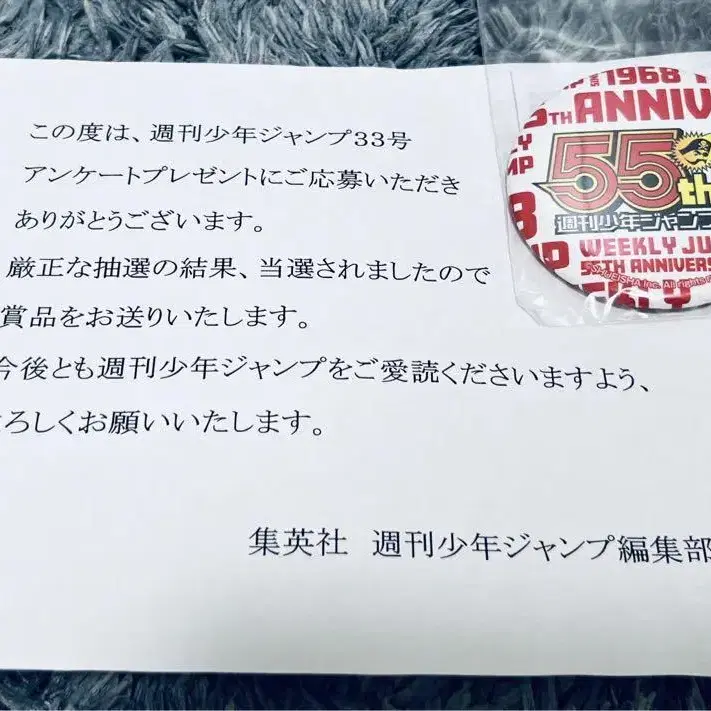 この度は、週刊少年ジャンプ33号
アンケートプレゼントにご応募いただき
ありがとうございます。
厳正な抽選の結果、当選されましたので
賞品をお送りいたします。
今後とも週刊少年ジャンプをご愛読くださいますよう、
よろしくお願いいたします。
集英社 週刊少年ジャンプ編集部
1968
TH ANNIV
55th
週刊少年ジャンプ
WEEKLY JU
55TH ANNIVERS
SHUEISHA Inc. All rights